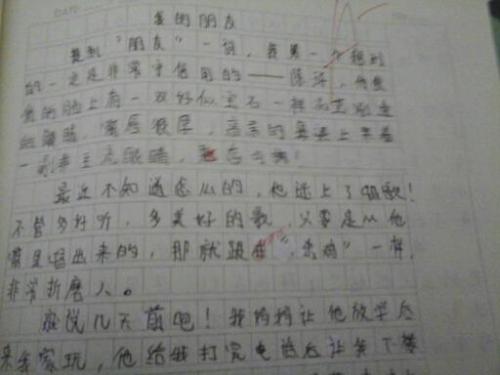 我的朋友
提到“朋友”一词，我第一个想到
的一定是非常守信用的——陈泽，
的脸上有一双好似宝石一样
的眼睛，嘴唇很厚，高高的鼻梁上
一副
最近不知道怎么的，他迷上了唱歌！
不管多好听，多美好的歌，只要是从他
嘴里唱出来的，那就跟“杀鸡”一样，
非常折磨人。
就说几天前吧！我妈妈让他放学后
来我家玩，他给她打完电话后让我下楼